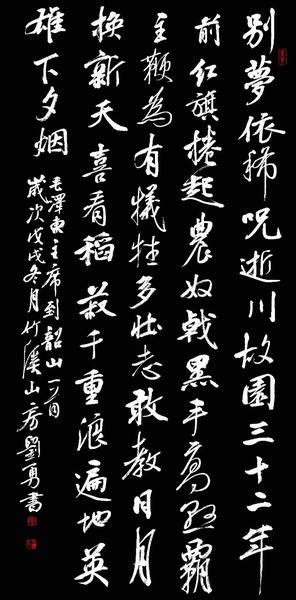 別夢依稀咒逝川故園三十二年
前红旗捲起農奴戟黑手高懸霸
主鞭為有犧牲多壮志敢教日月
換新天喜看稻菽千重浪遍地英
雄下夕烟
毛澤東主席到韶山一首
歲次戊戌冬月竹溪山房劉勇書